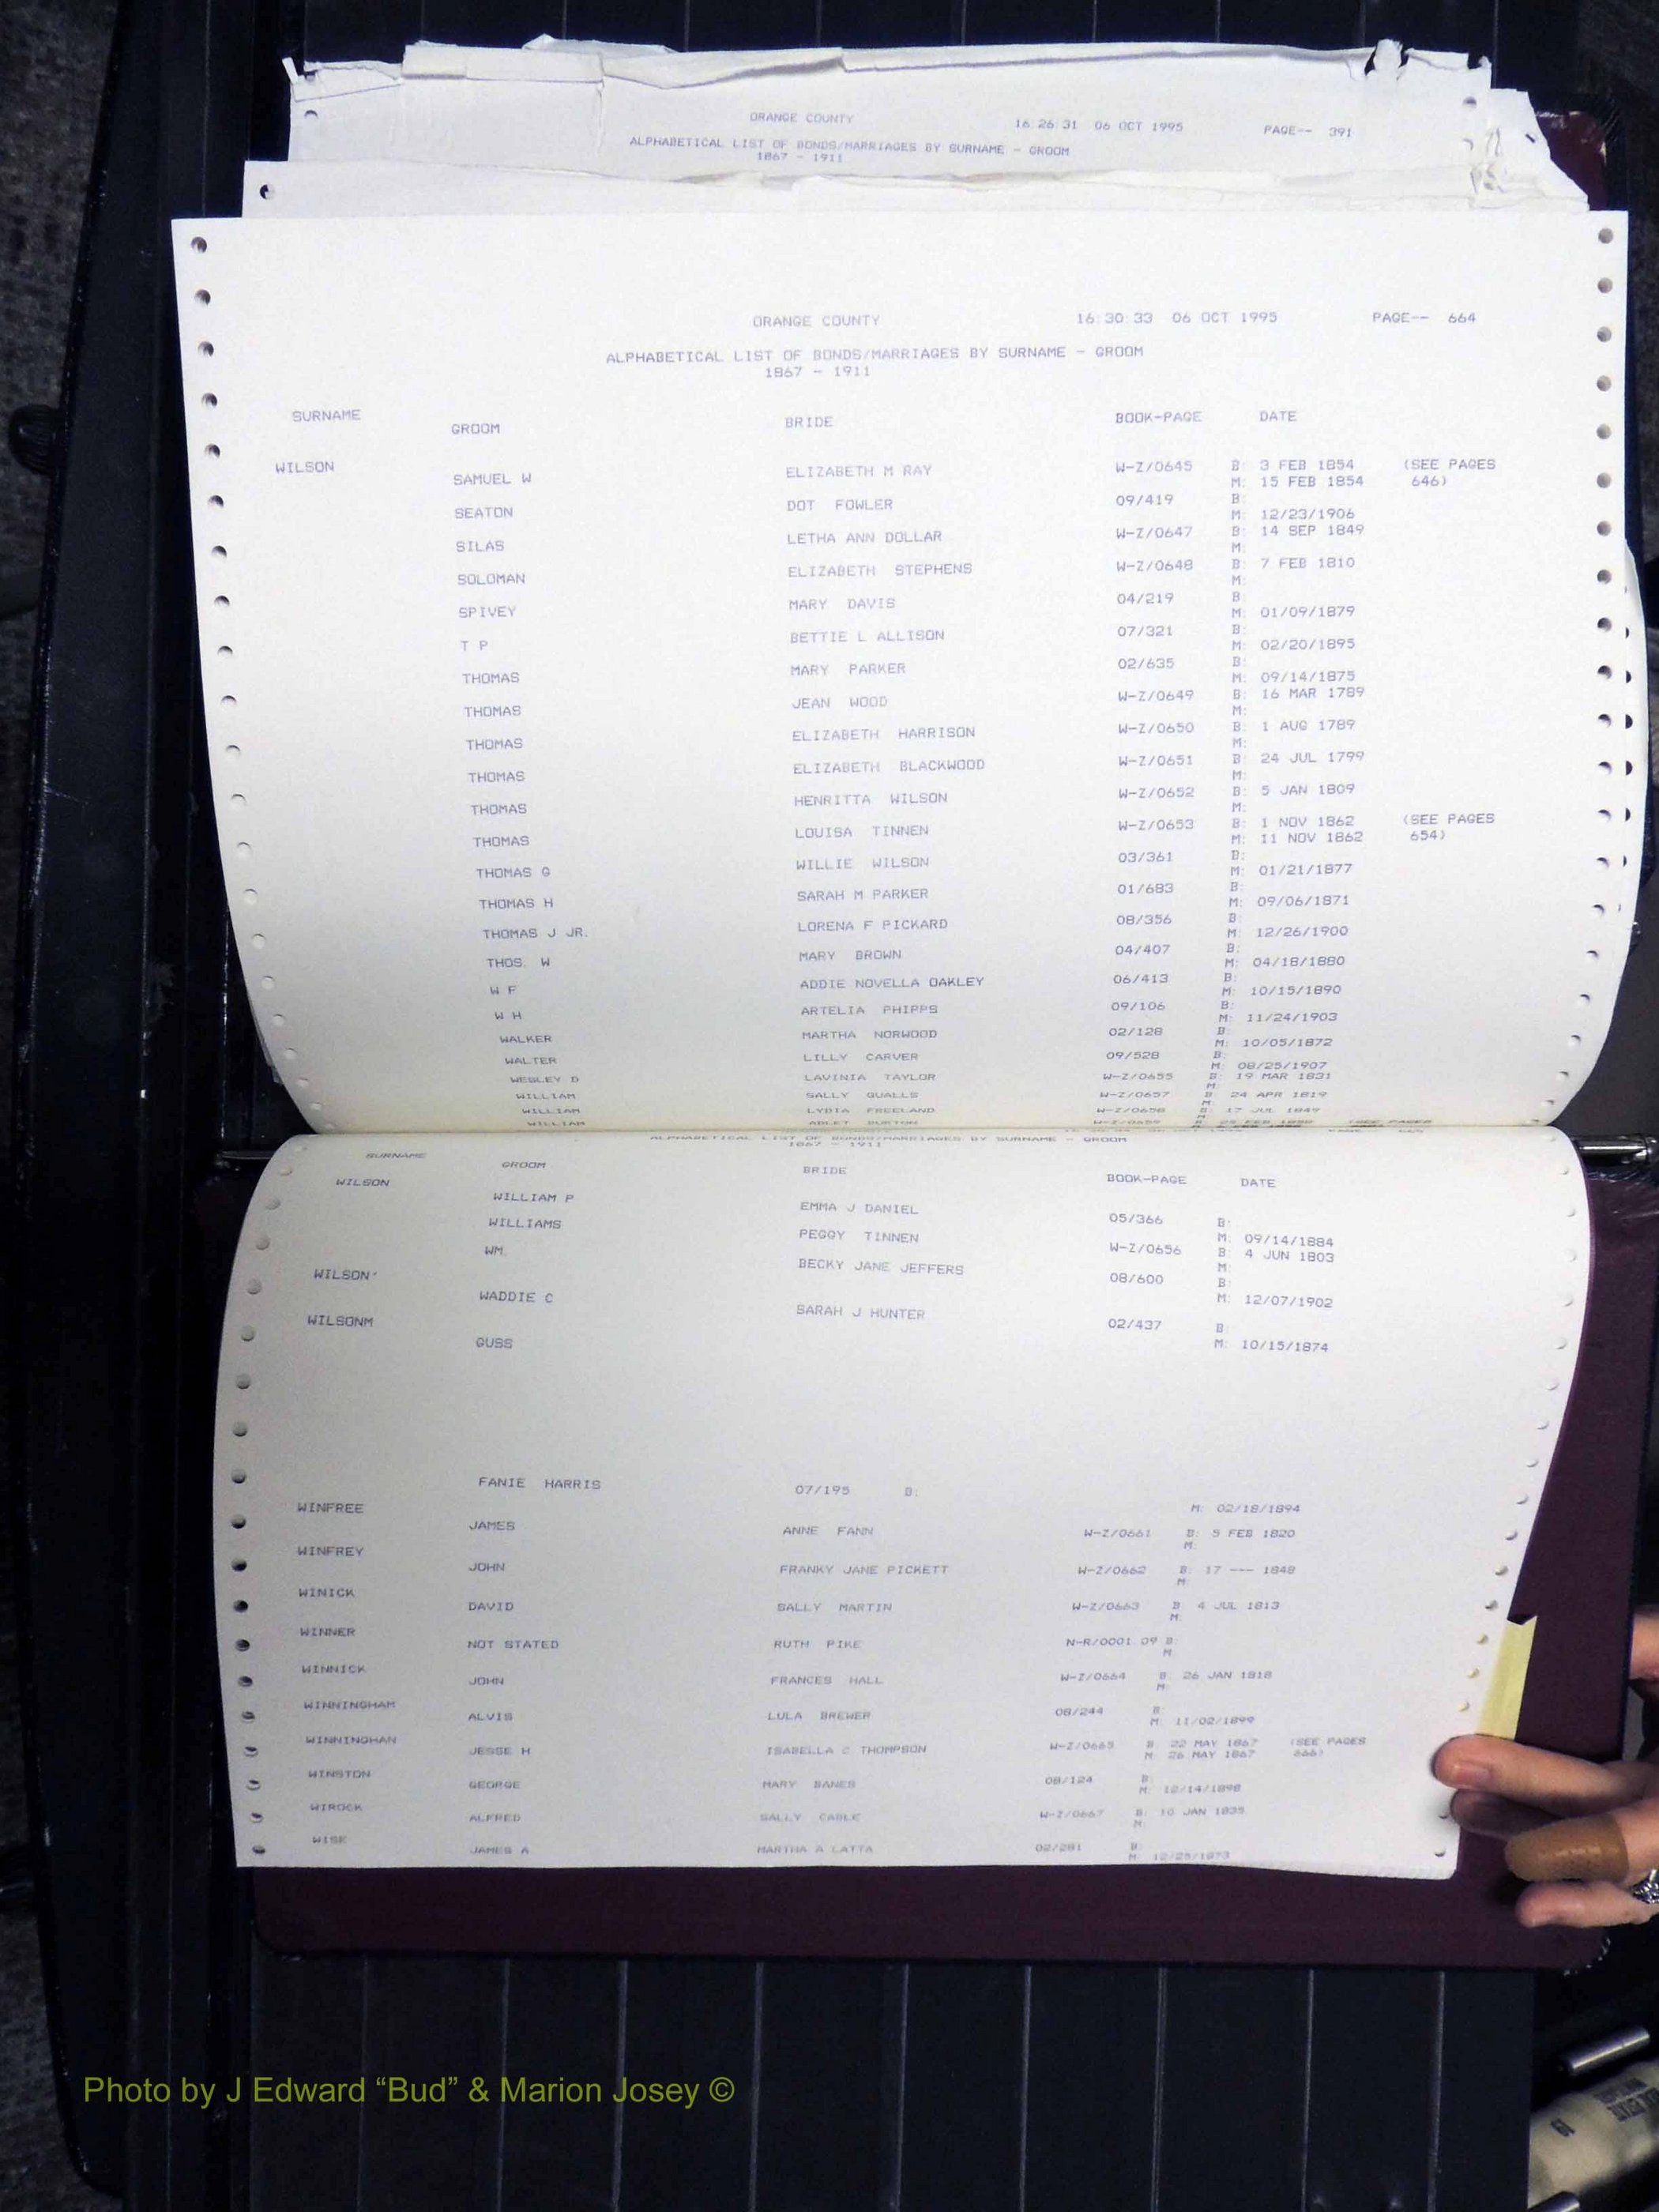 ORANGE COUNTY 16:26:31 06 OCT 1995 PAGE-- 391
ALPHABETICAL LIST OF BONDS/MARRIAGES BY SURNAME - GROOM
1867 - 1911
ORANGE COUNTY 16:30:33 06 OCT 1995 PAGE-- 664
ALPHABETICAL LIST OF BONDS/MARRIAGES BY SURNAME - GROOM
1867 - 1911
SURNAME GROOM BRIDE BOOK-PAGE DATE
WILSON SAMUEL W ELIZABETH M RAY W-Z/0645 B: 3 FEB 1854 (SEE PAGES
M: 15 FEB 1854 646)
SEATON DOT FOWLER 09/419 B:
M: 12/23/1906
SILAS LETHA ANN DOLLAR W-Z/0647 B: 14 SEP 1849
M:
SOLOMAN ELIZABETH STEPHENS W-Z/0648 B: 7 FEB 1810
M:
SPIVEY MARY DAVIS 04/219 B:
M: 01/09/1879
T P BETTIE L ALLISON 07/321 B:
M: 02/20/1895
THOMAS MARY PARKER 02/635 B:
M: 09/14/1875
THOMAS JEAN WOOD W-Z/0649 B: 16 MAR 1789
M:
THOMAS ELIZABETH HARRISON W-Z/0650 B: 1 AUG 1789
M:
THOMAS ELIZABETH BLACKWOOD W-Z/0651 B: 24 JUL 1799
M:
THOMAS HENRITTA WILSON W-Z/0652 B: 5 JAN 1809
M:
THOMAS LOUISA TINNEN W-Z/0653 B: 1 NOV 1862 (SEE PAGES
M: 11 NOV 1862 654)
THOMAS G WILLIE WILSON 03/361 B:
M: 01/21/1877
THOMAS H SARAH M PARKER 01/683 B:
M: 09/06/1871
THOMAS J JR. LORENA F PICKARD 08/356 B:
M: 12/26/1900
THOS. W MARY BROWN 04/407 B:
M: 04/18/1880
W F ADDIE NOVELLA OAKLEY 06/413 B:
M: 10/15/1890
W H ARTELIA PHIPPS 09/106 B:
M: 11/24/1903
WALKER MARTHA NORWOOD 02/128 B:
M: 10/05/1872
WALTER LILLY CARVER 09/528 B:
M: 08/25/1907
WESLEY D LAVINIA TAYLOR W-Z/0655 B: 19 MAR 1831
M:
WILLIAM SALLY QUALLS W-Z/0657 B: 24 APR 1819
M:
WILLIAM LYDIA FREELAND W-Z/0658 B: 17 JUL 1849
M:
WILLIAM BURTON W-Z/0659 (SEE PAGES
ALPHABETICAL LIST OF BONDS/MARRIAGES BY SURNAME - GROOM
1867 - 1911
SURNAME GROOM BRIDE BOOK-PAGE DATE
WILSON WILLIAM P EMMA J DANIEL 05/366 B:
M: 09/14/1884
WILLIAMS PEGGY TINNEN W-Z/0656 B: 4 JUN 1803
M:
WM. BECKY JANE JEFFERS 08/600 B:
M: 12/07/1902
WILSON' WADDIE C SARAH J HUNTER 02/437 B:
M: 10/15/1874
WILSONM GUSS
FANIE HARRIS 07/195 B:
M: 02/18/1894
WINFREE JAMES ANNE FANN W-Z/0661 B: 5 FEB 1820
M:
WINFREY JOHN FRANKY JANE PICKETT W-Z/0662 B: 17 --- 1848
M:
WINICK DAVID SALLY MARTIN W-Z/0663 B: 4 JUL 1813
M:
WINNER NOT STATED RUTH PIKE N-R/0001 09 B:
M:
WINNICK JOHN FRANCES HALL W-Z/0664 B: 26 JAN 1818
M:
WINNINGHAM ALVIS LULA BREWER 08/244 B:
M: 11/02/1899
WINNINGHAN JESSE H ISABELLA C THOMPSON W-Z/0665 B: 22 MAY 1867 (SEE PAGES
M: 26 MAY 1867 666)
WINSTON GEORGE MARY BANES 08/124 B:
M: 12/14/1898
WIROCK ALFRED SALLY CABLE W-Z/0667 B: 10 JAN 1835
M:
WISE JAMES A MARTHA A LATTA 02/281 B:
M: 12/25/1873
Photo by J Edward “Bud” & Marion Josey ©